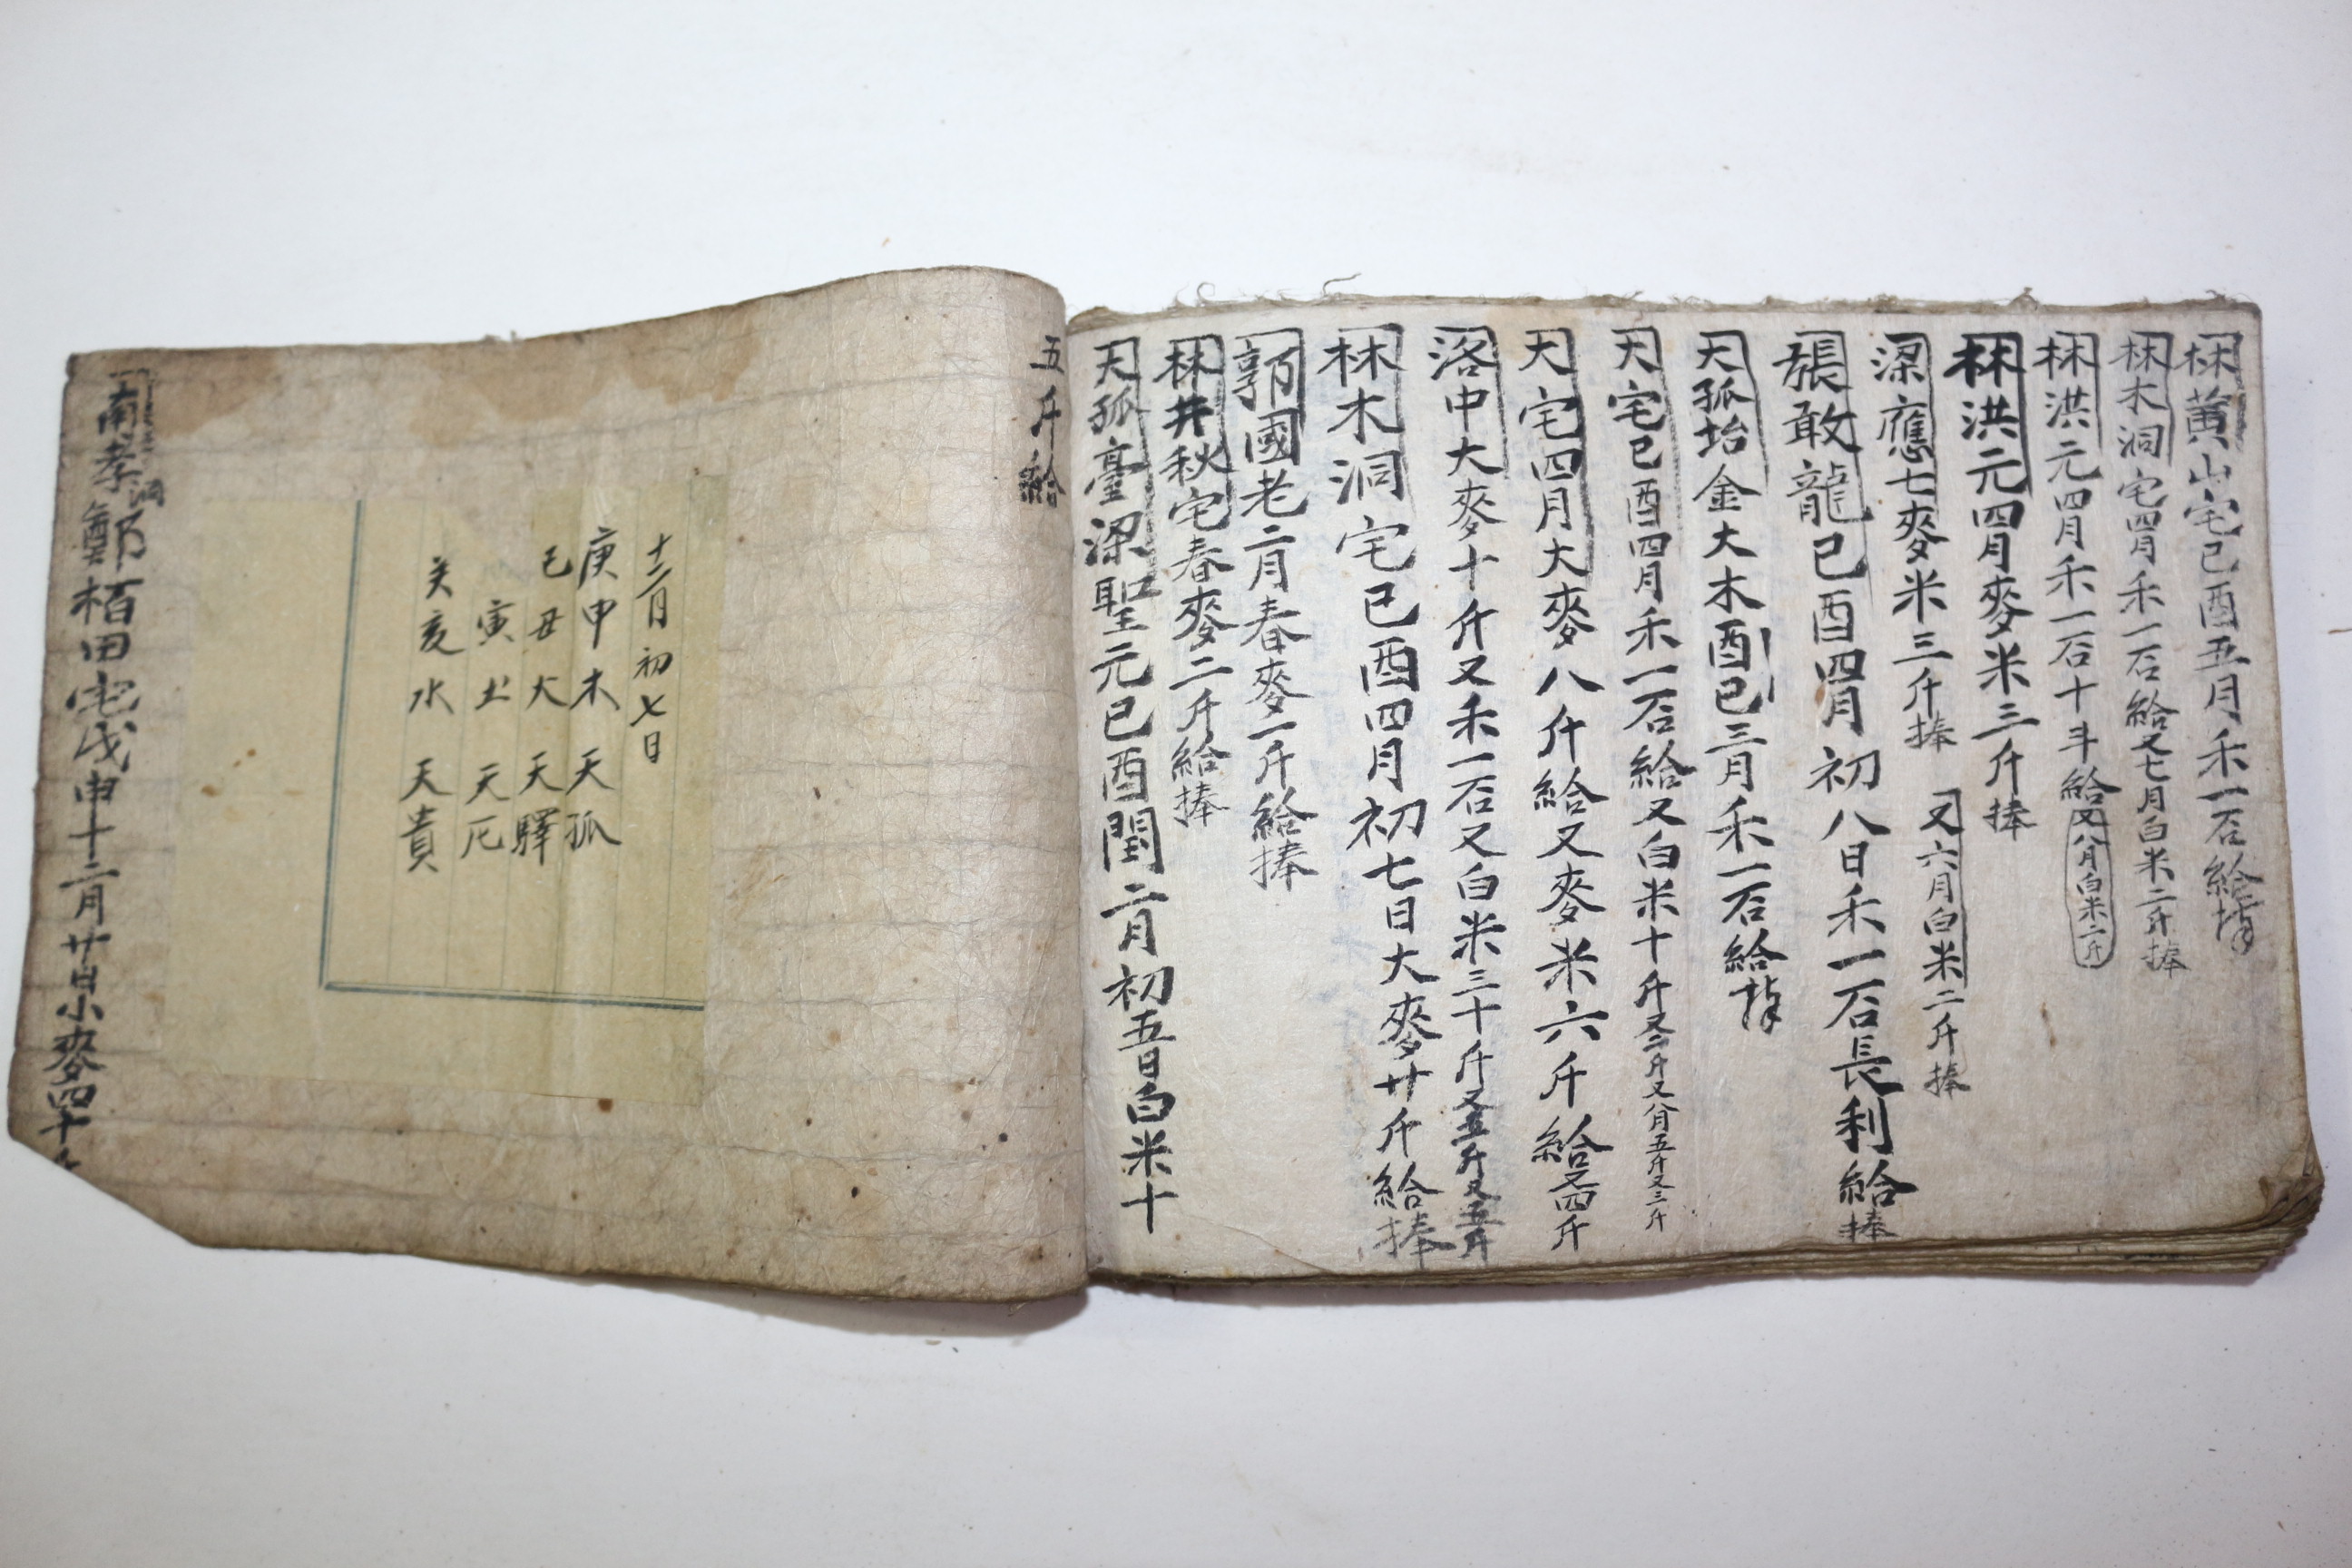 林黃山宅己酉五月禾一石給捧
林木洞宅四月禾一石給又七月白米二斤捧
林洪元四月禾一石十斗給又八月白米二斤
林洪元四月麥米三斤捧
梁應七麥米三斤捧 又六月白米二斤捧
張敢龍己酉四月初八日禾一石長利給捧
天孤坮金大木酉己三月禾一石給捧
天宅己酉四月禾一石給又白米十斤又二斤又八月五斤又三斤
天宅四月大麥八斤給又麥米六斤給又四斤
洛中大麥十斤又禾一石又白米三十斤又五斤又五斤
林木洞宅己酉四月初七日大麥廿斤給捧
郭國老二月春麥一斤給捧
林井秋宅春麥二斤給捧
天孤臺梁聖元己酉閏二月初五日白米十
五斤給
十二月初七日
庚申木 天孤
己丑火 天驛
寅土 天厄
亥水 天貴
南孝洞鄭栢田宅戊申十二月廿日小麥四十